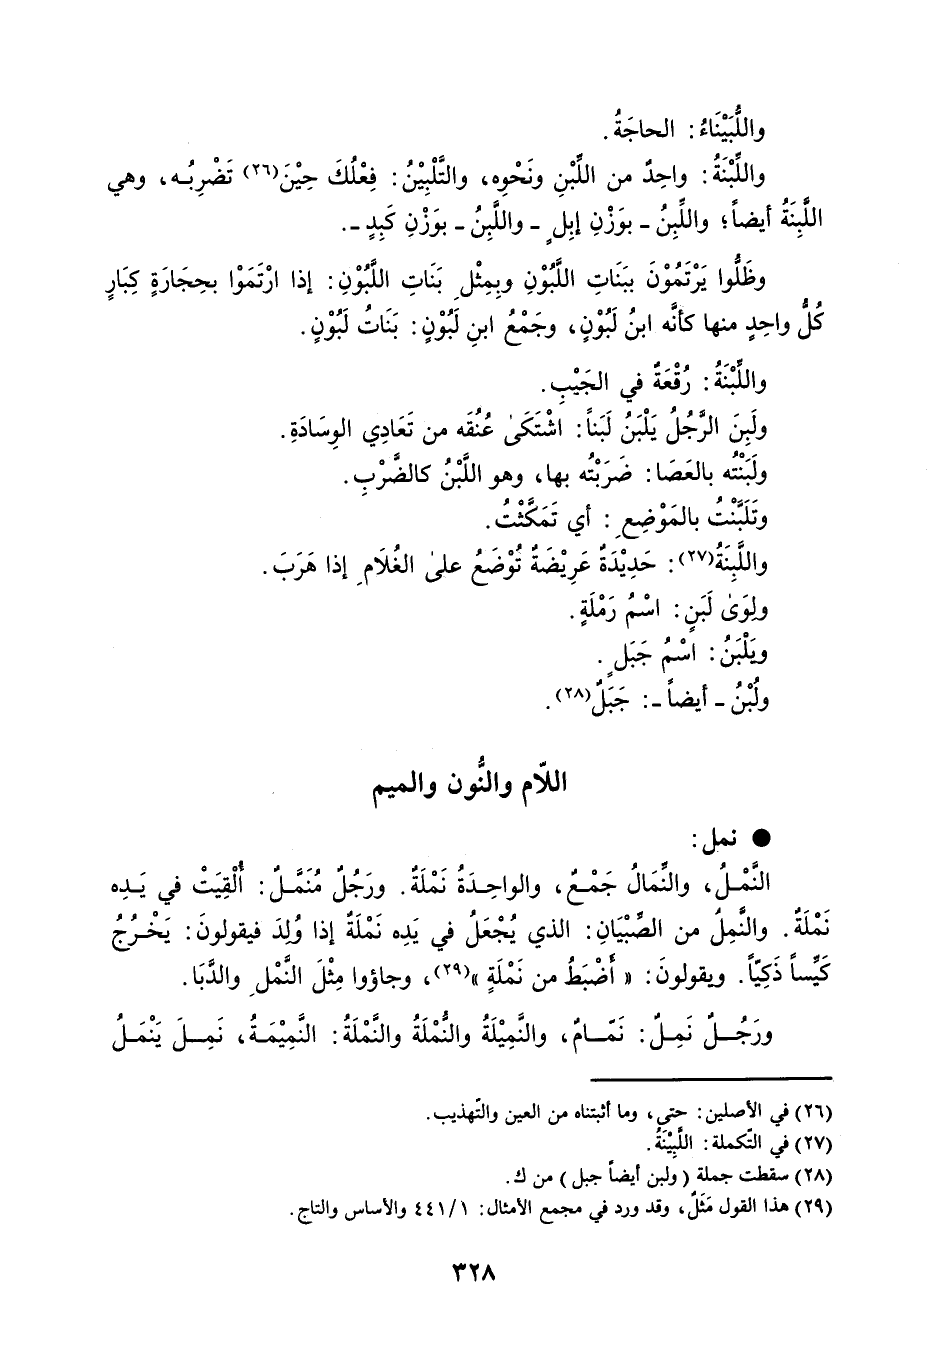 واللُّبَيْنَاءُ: الحاجَةُ.
واللِّبْنَةُ: واحِدٌ من اللِّبْنِ ونَحْوِه، والتَّلْبِيْنُ: فِعْلُكَ حِيْنَ(٢٦) تَضْرِبُـه، وهي
اللَّبِنَةُ أيضاً؛ واللِّبِنُ ـ بوَزْنِ إبِلٍ ـ واللَّبِنُ ـ بوَزْنِ كَبِدٍ ـ.
وظَلُّوا يَرْتَمُوْنَ ببَنَاتِ اللَّبُوْنِ وبِمِثْلِ بَنَاتِ اللَّبُوْنِ: إذا ارْتَمَوْا بحِجَارَةٍ كِبَارٍ
كُلُّ واحِدٍ منها كأنَّه ابنُ لَبُوْنٍ، وجَمْعُ ابنِ لَبُوْنٍ: بَنَاتُ لَبُوْنٍ.
واللِّبْنَةُ: رُقْعَةٌ في الجَيْبِ.
ولَبِنَ الرَّجُلُ يَلْبَنُ لَبَناً: اشْتَكَىٰ عُنُقَه من تَعَادِي الوِسَادَةِ.
ولَبَنْتُه بالعَصَا: ضَرَبْتُه بها، وهو اللَّبْنُ كالضَّرْبِ.
وتَلَبَّنْتُ بالمَوْضِعِ: أي تَمَكَّثْتُ.
واللَّبِنَةُ(٢٧): حَدِيْدَةٌ عَرِيْضَةٌ تُوْضَعُ علىٰ الغُلَامِ إذا هَرَبَ.
ولِوَىٰ لَبَنٍ: اسْمُ رَمْلَةٍ.
ويَلْبَنُ: اسْمُ جَبَلٍ.
ولُبْنُ ـ أيضاً ـ: جَبَلٌ(٢٨).
اللّام والنُّون والميم
● نمل:
النَّمْـلُ، والنِّمَالُ جَمْـعٌ، والواحِـدَةُ نَمْلَةٌ. ورَجُلٌ مُنَمَّـلٌ: أُلْقِيَتْ في يَـدِه
نَمْلَةٌ. والنَّمِلُ من الصِّبْيَانِ: الذي يُجْعَلُ في يَدِه نَمْلَةٌ إذا وُلِدَ فيقولونَ: يَخْـرُجُ
كَيِّساً ذَكِيّاً. ويقولونَ: « أَضْبَطُ من نَمْلَةٍ »(٢٩)، وجاؤوا مِثْلَ النَّمْلِ والدَّبَا.
ورَجُـــلٌ نَمِـلٌ: نَمّـامٌ، والنَّمِيْلَةُ والنُّمْلَةُ والنَّمْلَةُ: النَّمِيْمَـةُ، نَمِــلَ يَنْمَـلُ
(٢٦) في الأصلين: حتى، وما أثبتناه من العين والتّهذيب.
(٢٧) في التّكملة: اللَّبِيْنَةُ.
(٢٨) سقطت جملة ( ولبن أيضاً جبل ) من ك.
(٢٩) هذا القول مَثَلٌ، وقد ورد في مجمع الأمثال: ٤٤١/١ والأساس والتاج.
٣٢٨